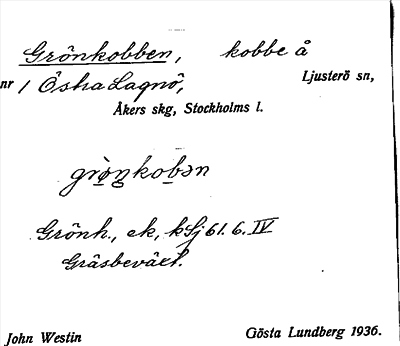 Grönkobben, kobbe å
nr 1 Östra Lagnö, Ljusterö sn,
Åkers skg, Stockholms l.
grø̀ŋkobən
Grönh., ek, kSj 61.6.IV
Gräsbeväxt.
John Westin Gösta Lundberg 1936.